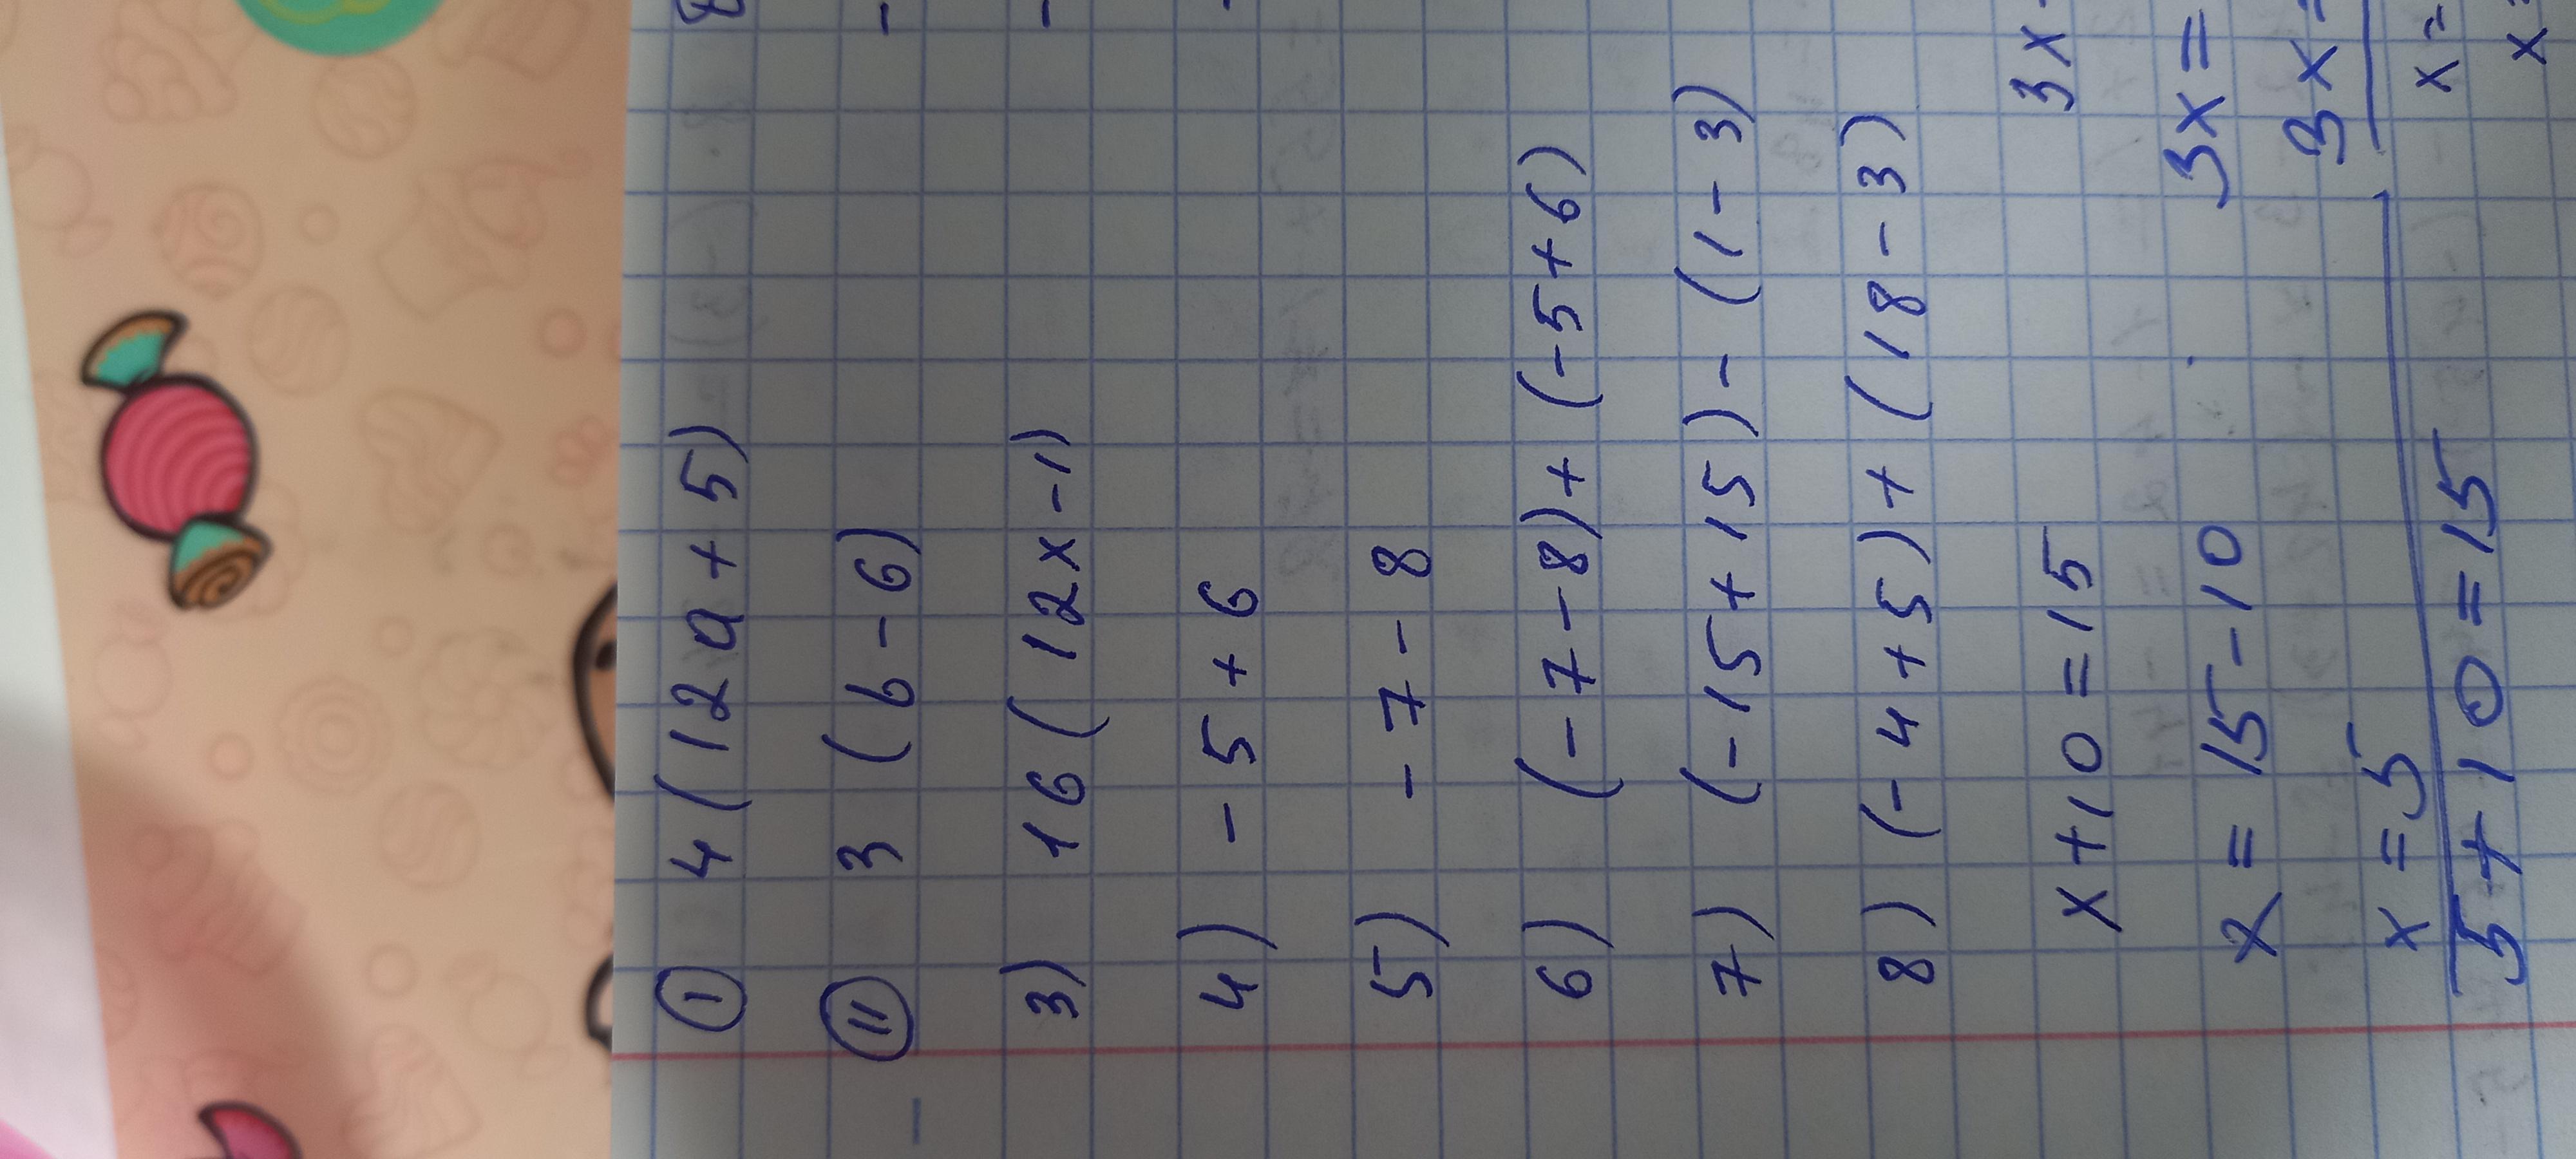 ① 4(12a+5)
⑪ 3(b-6)
3) 16(12x-1)
4) -5+6
5) -7-8
6) (-7-8)+(-5+6)
7) (-15+15)-(1-3)
8) (-4+5)+(18-3)
x+10=15 3x
x=15-10 3x=
x=5 3x=
5+10=15 x=
x=